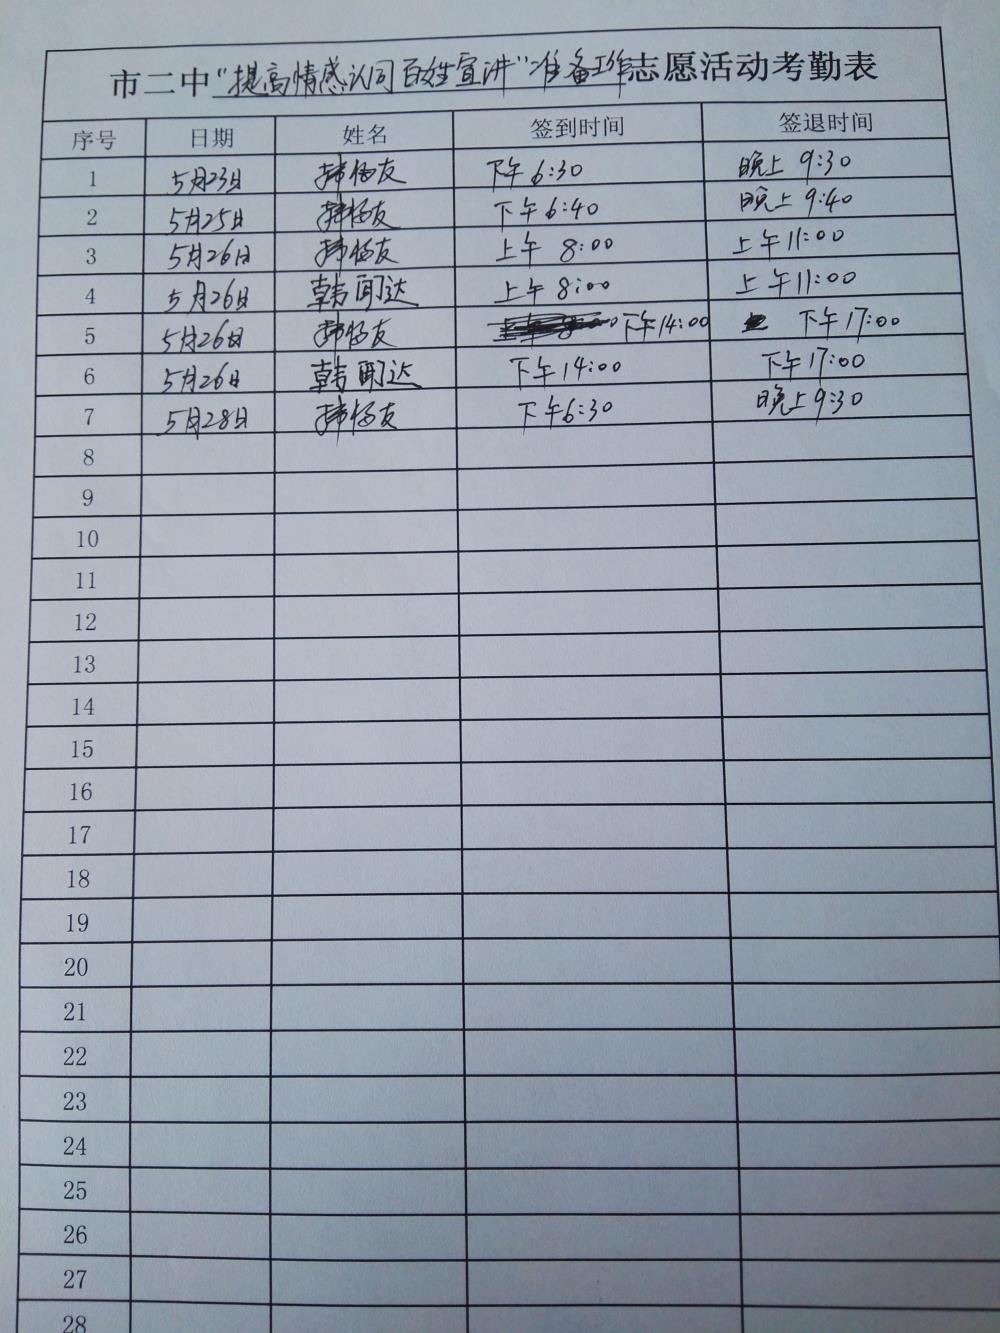 市二中"提高情感认同百姓宣讲"准备工作志愿活动考勤表
序号 日期 姓名 签到时间 签退时间
1 5月23日 下午6:30 晚上9:30
2 5月25日 下午6:40 晚上9:40
3 5月26日 上午 8:00 上午11:00
4 5月26日 韩闻达 上午8:00 上午11:00
5 5月26日 下午14:00 下午17:00
6 5月26日 韩闻达 下午14:00 下午17:00
7 5月28日 下午6:30 晚上9:30
8
9
10
11
12
13
14
15
16
17
18
19
20
21
22
23
24
25
26
27
28